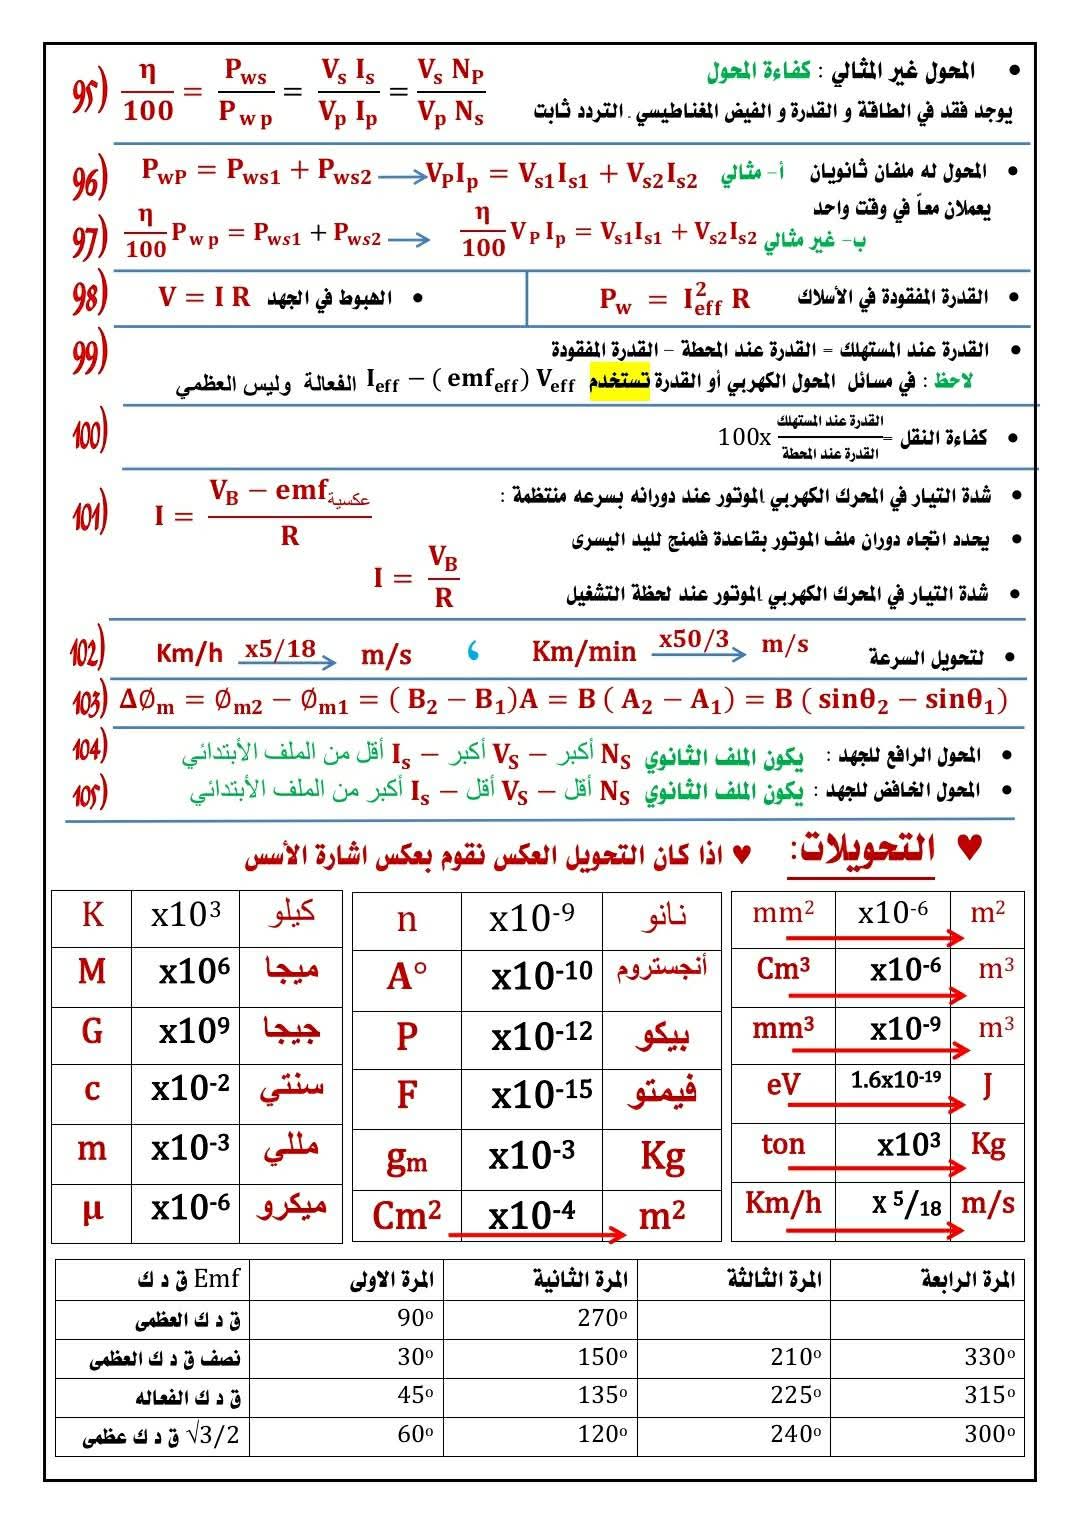 • المحول غير المثالي : كفاءة المحول
95) η/100 = Pws/Pwp = Vs Is/Vp Ip = Vs NP/Vp Ns
يوجد فقد في الطاقة و القدرة و الفيض المغناطيسي . التردد ثابت
• المحول له ملفان ثانويان أ- مثالي
96) PwP = Pws1 + Pws2 ⟶ VPIp = Vs1Is1 + Vs2Is2
يعملان معاً في وقت واحد
ب- غير مثالي
97) η/100 Pwp = Pws1 + Pws2 ⟶ η/100 VP Ip = Vs1Is1 + Vs2Is2
• القدرة المفقودة في الأسلاك Pw = I²eff R
98) • الهبوط في الجهد V = I R
99) • القدرة عند المستهلك = القدرة عند المحطة – القدرة المفقودة
لاحظ : في مسائل المحول الكهربي أو القدرة تستخدم Ieff – ( emfeff) Veff الفعالة وليس العظمي
100) • كفاءة النقل = القدرة عند المستهلك/القدرة عند المحطة 100x
• شدة التيار في المحرك الكهربي الموتور عند دورانه بسرعه منتظمة :
101) I = VB − emfعكسية/R
• يحدد اتجاه دوران ملف الموتور بقاعدة فلمنج لليد اليسرى
• شدة التيار في المحرك الكهربي الموتور عند لحظة التشغيل
I = VB/R
• لتحويل السرعة
102) Km/h x5/18 ⟶ m/s ، Km/min x50/3 ⟶ m/s
103) Δ∅m = ∅m2 − ∅m1 = ( B2 − B1)A = B ( A2 − A1) = B ( sinθ2 − sinθ1)
104) • المحول الرافع للجهد : يكون الملف الثانوي NS أكبر – VS أكبر – Is أقل من الملف الأبتدائي
105) • المحول الخافض للجهد : يكون الملف الثانوي NS أقل – VS أقل – Is أكبر من الملف الأبتدائي
♥ التحويلات: ♥ اذا كان التحويل العكس نقوم بعكس اشارة الأسس
K x10³ كيلو
M x10⁶ ميجا
G x10⁹ جيجا
c x10⁻² سنتي
m x10⁻³ مللي
μ x10⁻⁶ ميكرو
n x10⁻⁹ نانو
A° x10⁻¹⁰ أنجستروم
P x10⁻¹² بيكو
F x10⁻¹⁵ فيمتو
gm x10⁻³ Kg
Cm² x10⁻⁴ m²
mm² x10⁻⁶ m²
Cm³ x10⁻⁶ m³
mm³ x10⁻⁹ m³
eV 1.6x10⁻¹⁹ J
ton x10³ Kg
Km/h x 5/18 m/s
Emf ق د ك المرة الاولى المرة الثانية المرة الثالثة المرة الرابعة
ق د ك العظمى 90º 270º
نصف ق د ك العظمى 30º 150º 210º 330º
ق د ك الفعاله 45º 135º 225º 315º
√3/2 ق د ك عظمى 60º 120º 240º 300º